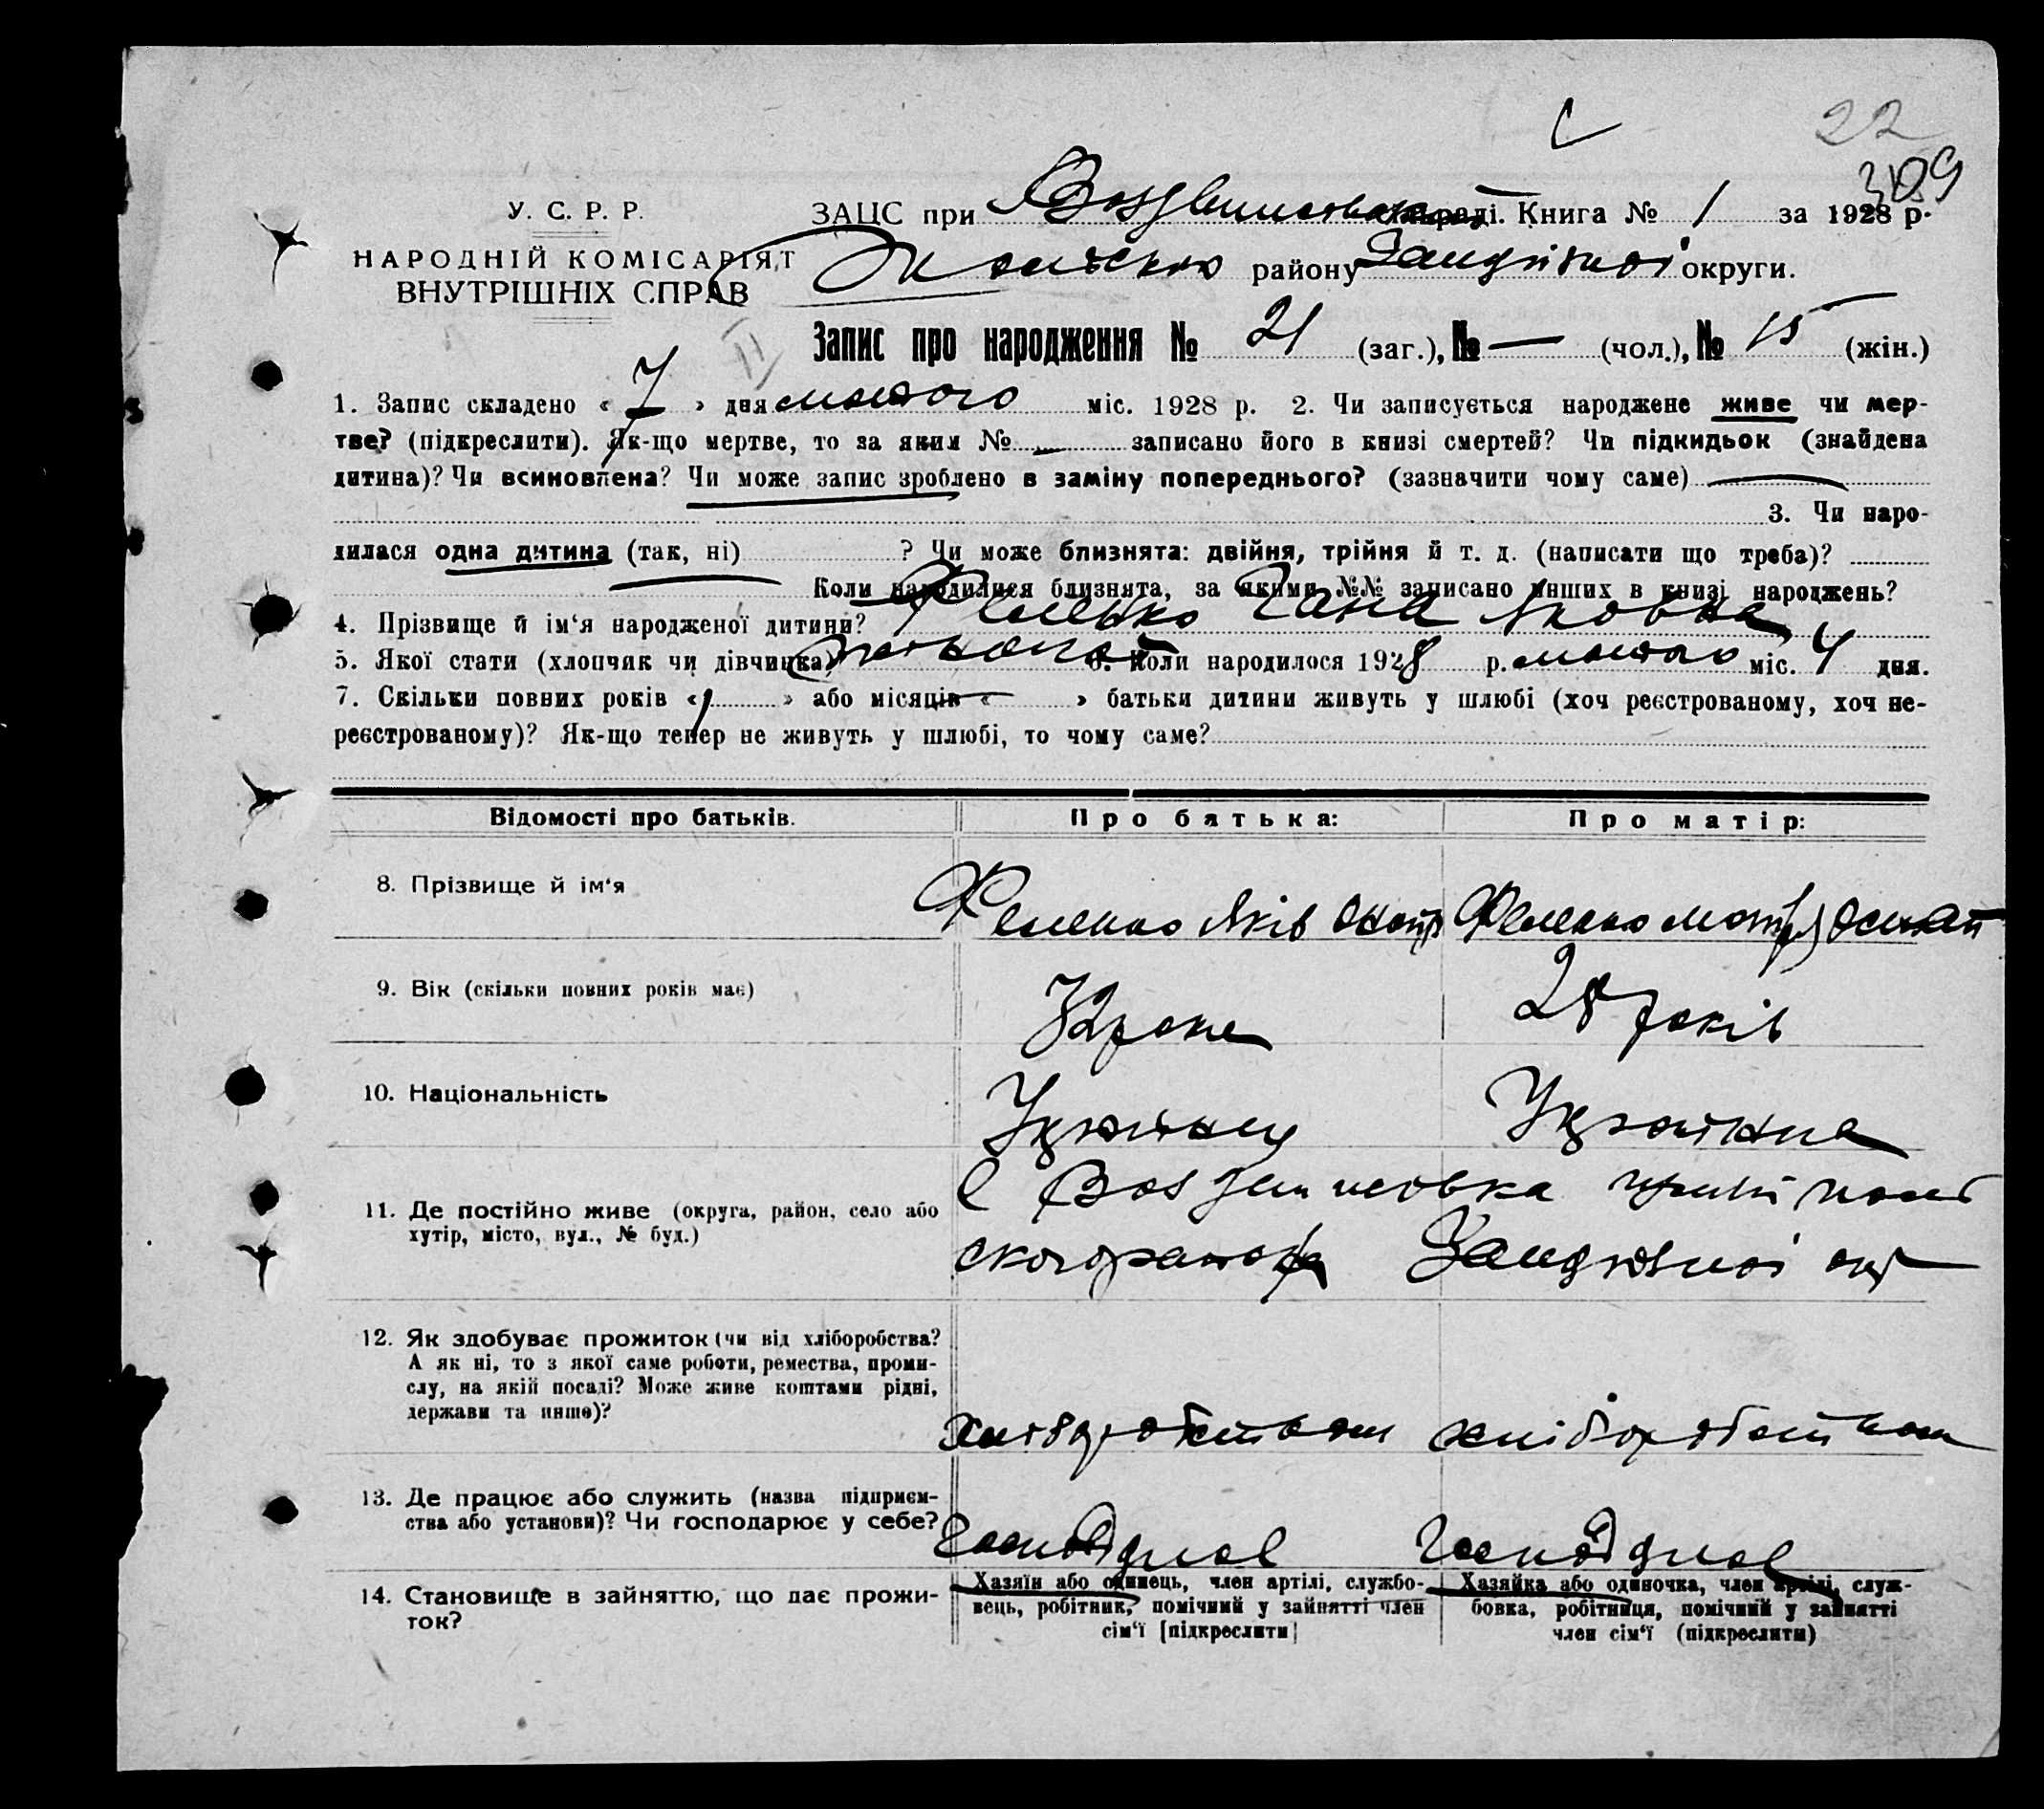 22
309
У. С. Р. Р.
НАРОДНІЙ КОМІСАРІЯТ
ВНУТРІШНІХ СПРАВ
ЗАЦС при раді. Книга № 1 за 1928 р.
району округи.
Запис про народження № 21 (заг.), № — (чол.), № 15 (жін.)
1. Запис складено « 7 » дня лютого міс. 1928 р. 2. Чи записується народжене живе чи мер-
тве? (підкреслити). Як-що мертве, то за яким № — записано його в книзі смертей? Чи підкидьок (знайдена
дитина)? Чи всиновлена? Чи може запис зроблено в заміну попереднього? (зазначити чому саме) —
3. Чи наро-
дилася одна дитина (так, ні) ? Чи може близнята: двійня, трійня й т. д. (написати що треба)?
Коли народилися близнята, за якими №№ записано инших в книзі народжень?
4. Прізвище й ім‘я народженої дитини? Яковна
5. Якої стати (хлопчик чи дівчинка) 6. Коли народилося 1928 р. лютого міс. 4 дня.
7. Скільки повних років «1» або місяців « — » батьки дитини живуть у шлюбі (хоч реєстрованому, хоч не-
реєстрованому)? Як-що тепер не живуть у шлюбі, то чому саме?
Відомості про батьків. Про батька: Про матір:
8. Прізвище й ім‘я Яків
9. Вік (скільки повних років має) 32 роки 28 років
10. Національність Українець Українка
11. Де постійно живе (округа, район, село або
хутір, місто, вул., № буд.)
12. Як здобуває прожиток (чи від хліборобства?
А як ні, то з якої саме роботи, ремества, проми-
слу, на якій посаді? Може живе коштами рідні,
держави та инше)?
хліборобством хліборобством
13. Де працює або служить (назва підприєм-
ства або установи)? Чи господарює у себе?
14. Становище в зайняттю, що дає прожи-
ток?
Хазяїн або одинець, член артілі, службо-
вець, робітник, помічний у зайнятті член
сім‘ї [підкреслити]
Хазяйка або одиночка, член артілі, служ-
бовка, робітниця, помічний у зайнятті
член сім‘ї (підкреслити)